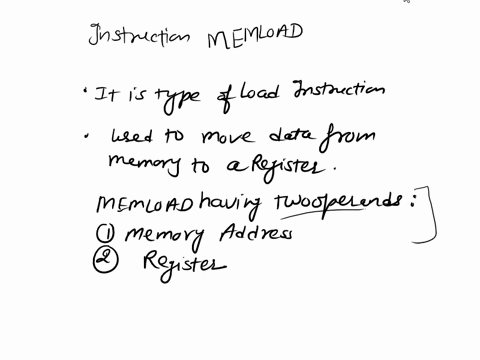 Instruction MEMLOAD
• It is type of Load Instruction
• Used to move data from
memory to a Register.
MEMLOAD having two operends:
① Memory Address
② Register